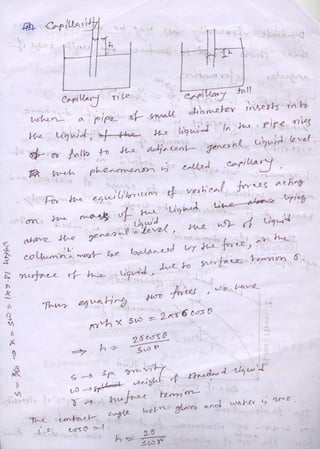 Capillarity
h
h
Capillary rise
Capillary fall
when a pipe of small diameter inserts into
the liquid, the liquid in the pipe rises
or falls to the adjacent general liquid level.
such phenomenon is called capillary.
For the equilibrium of vertical forces acting
on the mass of the liquid lying
above the general liquid level, the wt of liquid
column must be balanced by the force, at the
surface of the liquid, due to surface tension σ.
Thus equating two forces, we have
πr²h × sw = 2πrσ cosθ
⇒ h = 2σcosθ / swr
s → sp. gravity
w → weight of standard liquid
→ surface tension
The contact angle between glass and water is zero.
i.e. cosθ = 1.
h = 2σ / swr